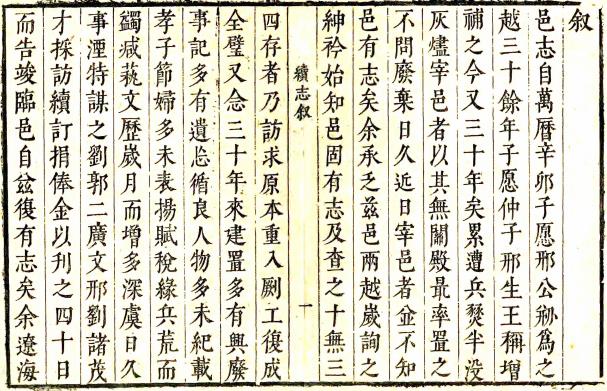 叙
邑志自萬曆辛卯子愿邢公剏爲之
越三十餘年子愿仲子邢生王稱增
補之今又三十年矣累遭兵燹半没
灰燼宰邑者以其無關殿最率置之
不問廢棄日久近日宰邑者並不知
邑有志矣余承乏兹邑兩越歲詢之
紳衿始知邑固有志及查之十無三
續志叙
一
四存者乃訪求原本重入劂工復成
全璧又念三十年來建置多有興廢
事記多有遺忘循良人物多未紀載
孝子節婦多未表揚賦稅緣兵荒而
蠲減藝文歷歲月而增多深虞日久
事湮特謀之劉郭二廣文邢劉諸茂
才採訪續訂捐俸金以刋之四十日
而告竣臨邑自兹復有志矣余遼海